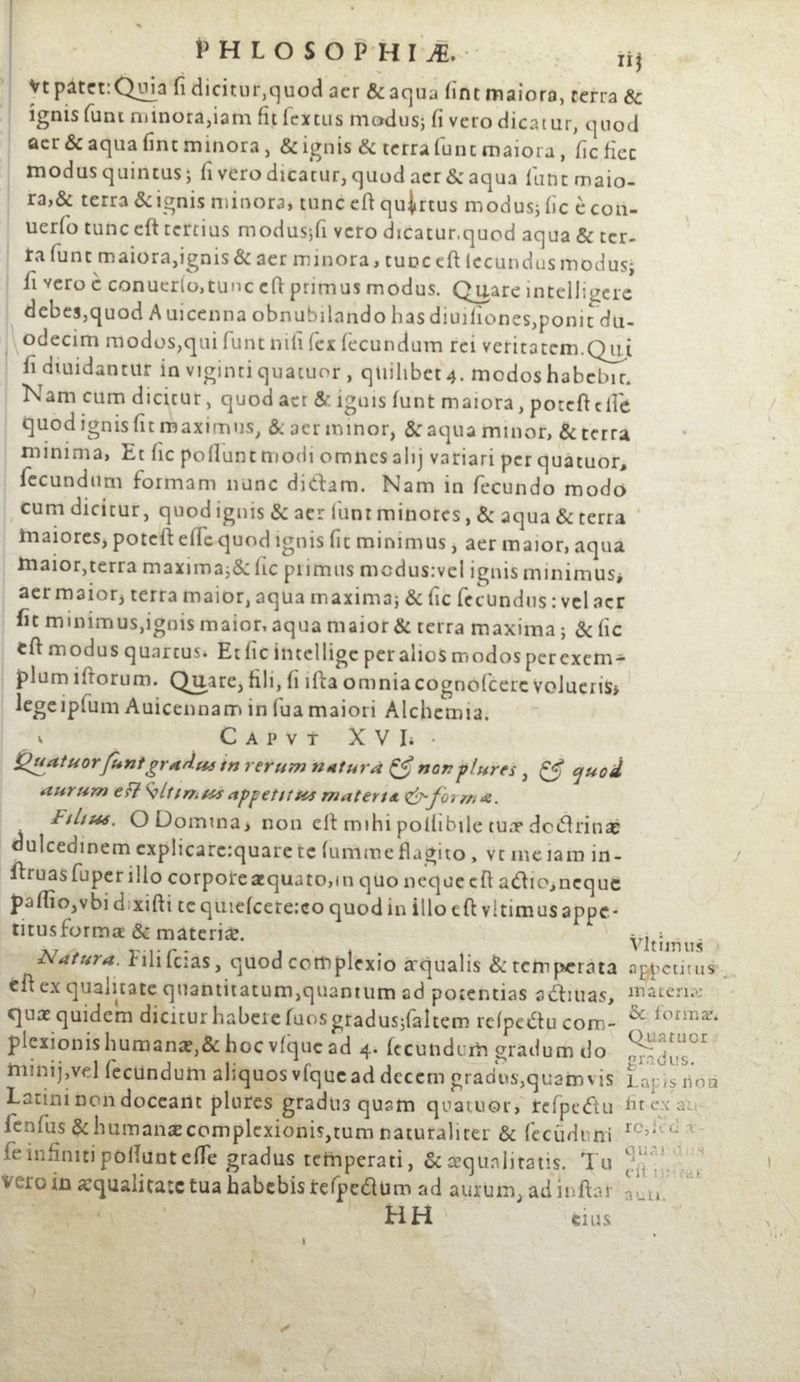 PHLOSOPHIÆ. iij
vt patet: Quia ſi dicitur,quod aer & aqua ſint maiora, terra &
ignis ſunt minora,iam fit ſextus modus; ſi vero dicatur, quod
aer & aqua ſint minora, & ignis & terra ſunt maiora, ſic fiet
modus quintus; ſi vero dicatur, quod aer & aqua ſunt maio-
ra,& terra & ignis minora, tunc eſt quartus modus; ſic è con-
uerſo tunc eſt tertius modus;ſi vero dicatur.quod aqua & ter-
ra ſunt maiora,ignis & aer minora, tunc eſt ſecundus modus;
ſi vero è conuerſo,tunc eſt primus modus. Quare intelligere
debes,quod Auicenna obnubilando has diuiſiones,ponit du-
odecim modos,qui ſunt niſi ſex ſecundum rei veritatem.Qui
ſi diuidantur in viginti quatuor, quilibet 4. modos habebit.
Nam cum dicitur, quod aer & ignis ſunt maiora, poteſt eſſe
quod ignis ſit maximus, & aer minor, & aqua minor, & terra
minima, Et ſic poſſunt modi omnes alij variari per quatuor,
ſecundum formam nunc dictam. Nam in ſecundo modo
cum dicitur, quod ignis & aer ſunt minores, & aqua & terra
maiores, poteſt eſſe quod ignis ſit minimus, aer maior, aqua
maior,terra maxima;& ſic primus modus:vel ignis minimus,
aer maior, terra maior, aqua maxima; & ſic ſecundus: vel aer
ſit minimus,ignis maior, aqua maior & terra maxima; & ſic
eſt modus quartus. Et ſic intellige per alios modos per exem-
plum iſtorum. Quare, fili, ſi iſta omnia cognoſcere volueris,
lege ipſum Auicennam in ſua maiori Alchemia.
CAPVT XVI.
Quatuor ſunt gradus in rerum natura & non plures, & quod
aurum eſt vltimus appetitus materiæ & formæ.
Filius. O Domina, non eſt mihi poſſibile tuæ doctrinæ
dulcedinem explicare:quare te ſumme flagito, vt me iam in-
ſtruas ſuper illo corpore æquato,in quo neque eſt actio,neque
paſſio,vbi dixiſti te quieſcere:eo quod in illo eſt vltimus appe-
titus formæ & materiæ.
Natura. Fili ſcias, quod complexio æqualis & temperata
eſt ex qualitate quantitatum,quantum ad potentias actiuas,
quæ quidem dicitur habere ſuos gradus;ſaltem reſpectu com-
plexionis humanæ,& hoc vſque ad 4. ſecundum gradum do
minij,vel ſecundum aliquos vſque ad decem gradus,quamvis
Latini non doceant plures gradus quam quatuor, reſpectu
ſenſus & humanæ complexionis,tum naturaliter & ſecūdum
ſe infiniti poſſunt eſſe gradus temperati, & æqualitatis. Tu
vero in æqualitate tua habebis reſpectum ad aurum, ad inſtar
Vltimus
appetitus
materiæ
& formæ.
Quatuor
gradus.
Lapis non
fit ex au-
HH eius